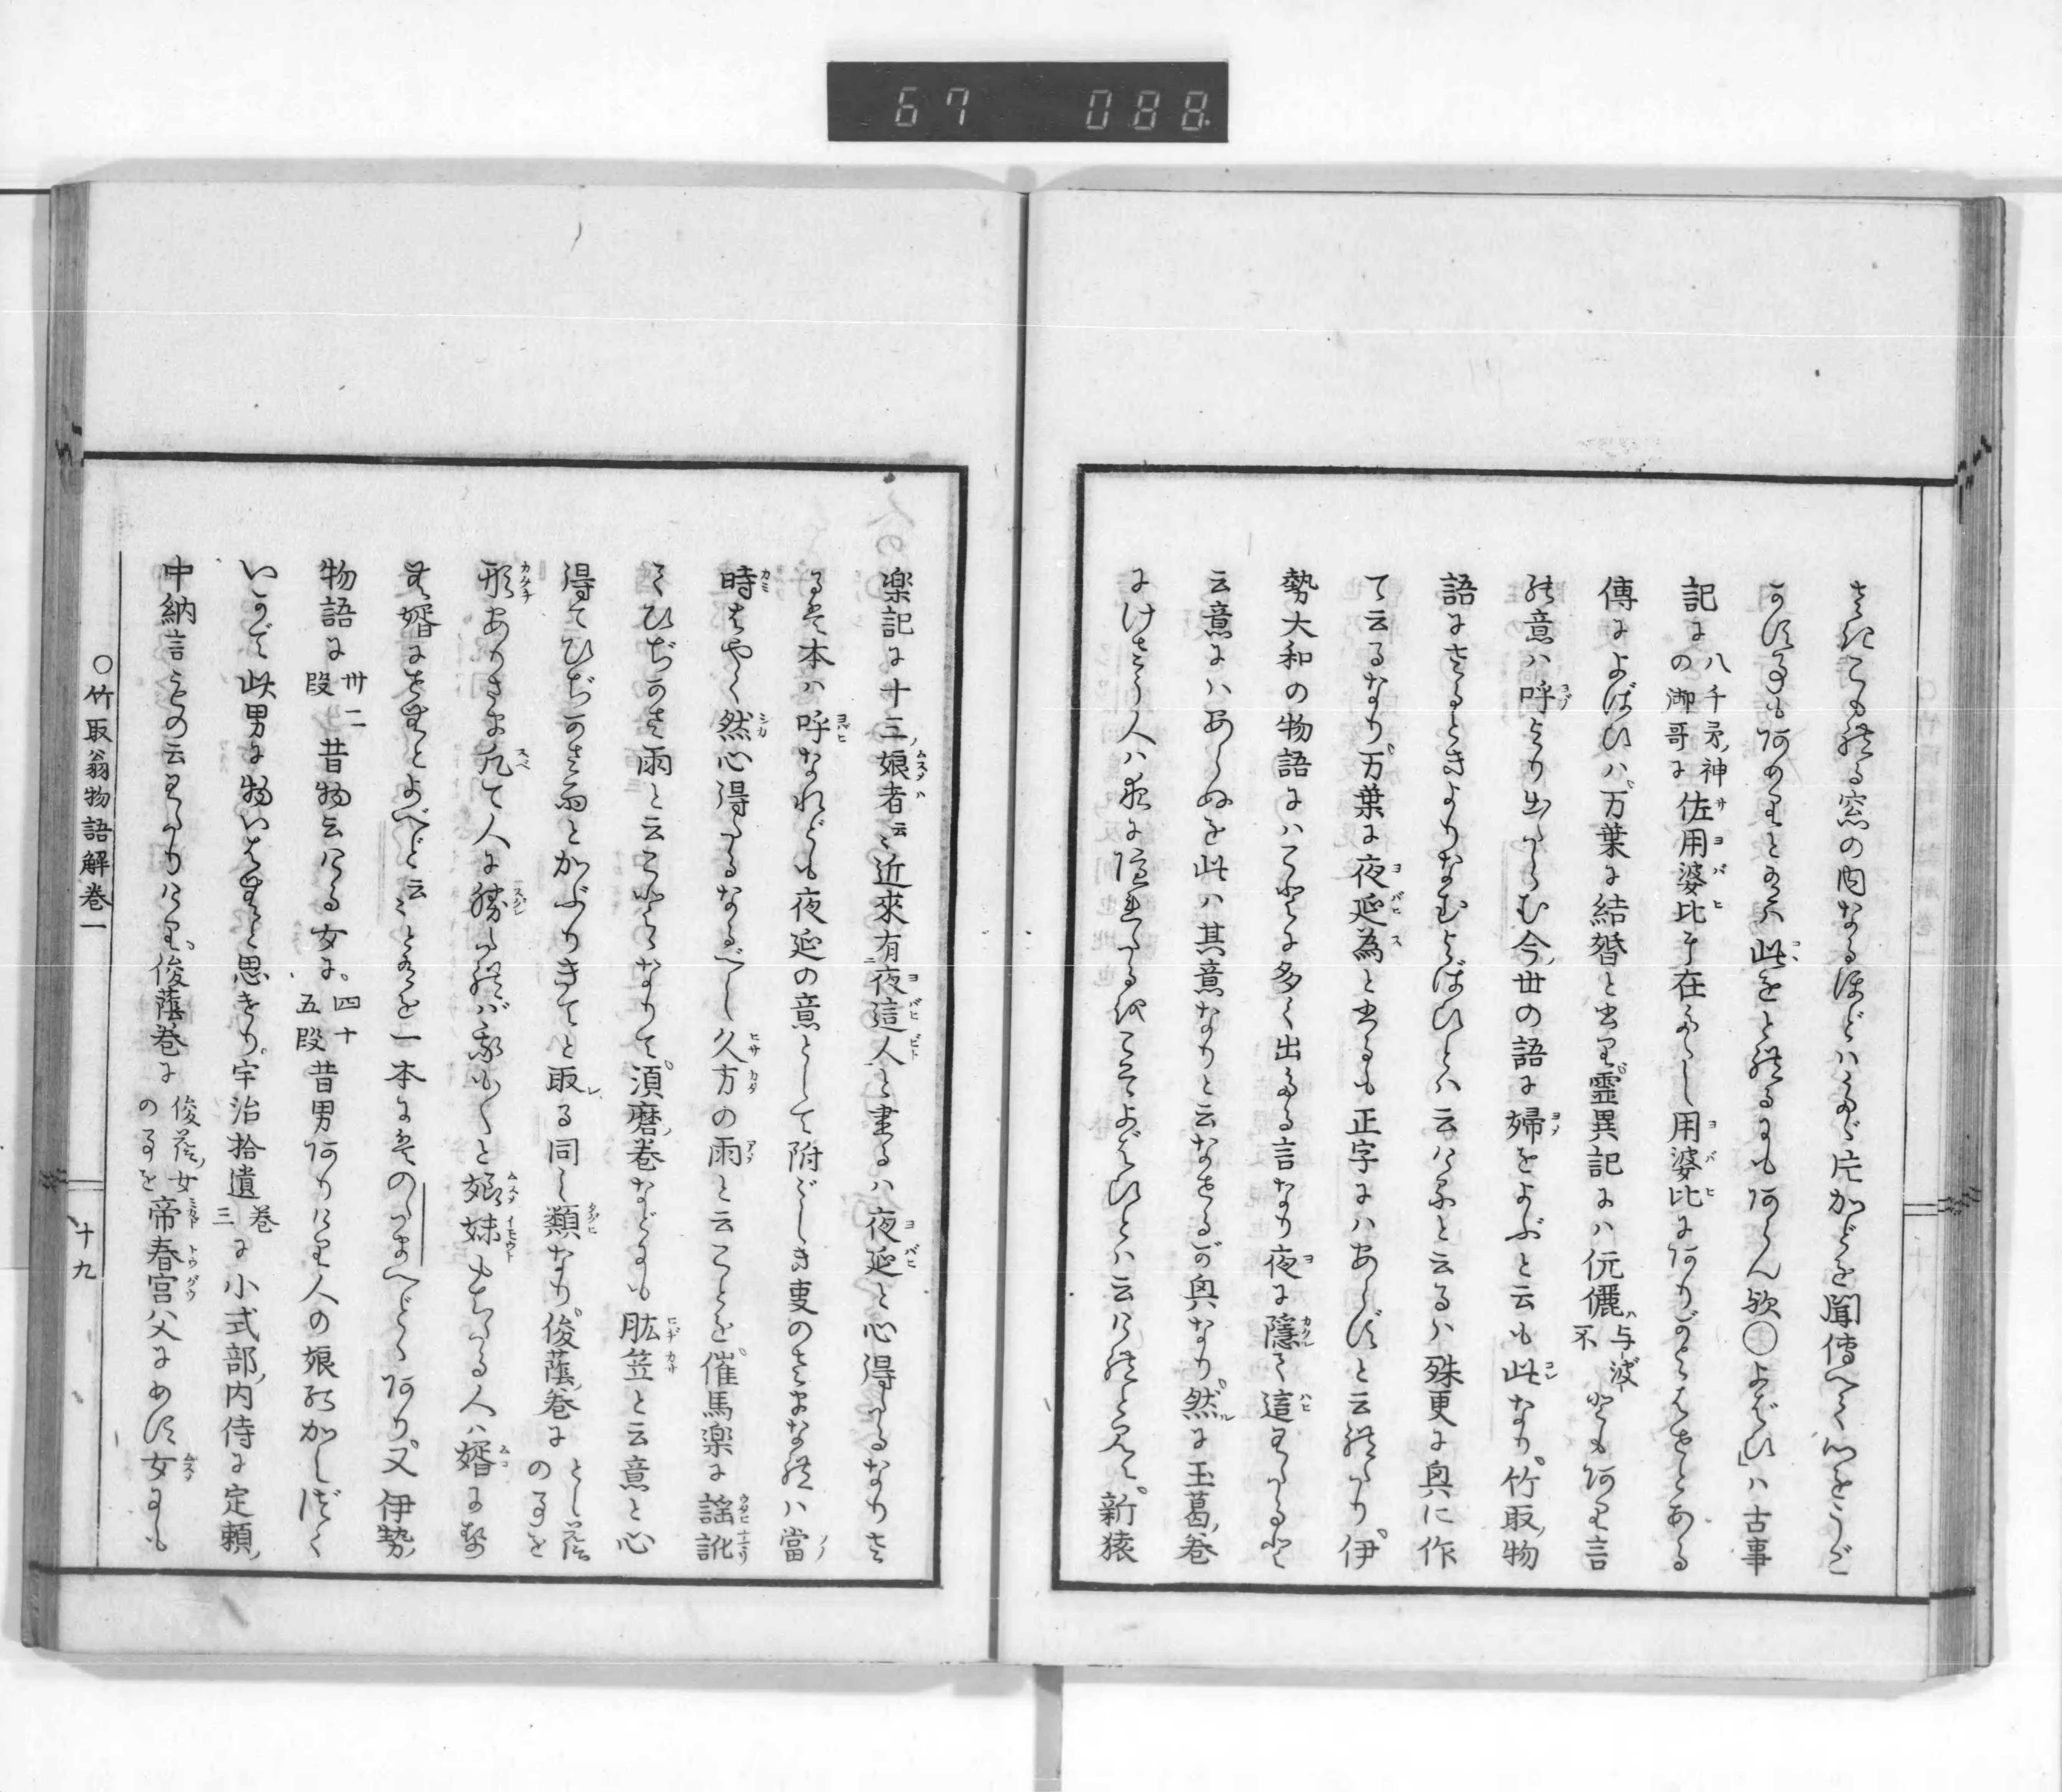 67 088
さまにこもれる窓の内なるほどハたゞ片かどを聞傳へて心をうご
かす事もあめりとあるハ此をとれるにもあらん欤○よばひハ古事
記に八千矛神の御哥に佐用婆比尓在たゝし用婆比にありがよはせとある
傳によばひハ万葉に結婚と書り霊異記にハ伉儷ハ与波不ともあり言
の意ハ呼より出たらむ今世の語に婦をよぶと云も此なり竹取物
語にさるときよりなむよばひとハ云けると云るハ殊更に興に作
て云るなり万葉に夜延為と書るも正字にハあらずと云れたり伊
勢大和の物語にハこゝに多く出たる言なり夜に隠て這わたると
云意にハあらぬを此ハ其意なりと云なせるが興なり然に玉葛巻
にけさう人ハ夜に隠れたるをこそよばひとハ云けれと見え新猿
楽記に十三娘者云々近來有夜這人と書るハ夜延と心得たるなりさ
るを本ハ呼なれども夜延の意として附べき事のさまなれハ當
時はやく然心得たるなるべし久方の雨と云ことを催馬楽に謡訛
てひぢかさ雨と云ことゝなりて須磨巻などにも肱笠と云意と心
得てひぢかさ雨とかぶりきてと取る同し類なり俊蔭巻にとし蔭の事を
形ありさま凡て人に勝たれバ我も〳〵と娘妹もちたる人ハ婿にせ
む婿にせむとよべど云々とあるを一本にそのつまへどゝあり又伊勢
物語に卅二段昔物云ける女に四十五段昔男ありけり人の娘のかしづく
いかで此男に物いはむと思けり宇治拾遺巻三に小式部内侍に定頼
中納言ものの云わたりけり俊蔭巻に俊蔭女の事を帝春宮ハ父にめす女にも
○竹取翁物語解巻一
十九